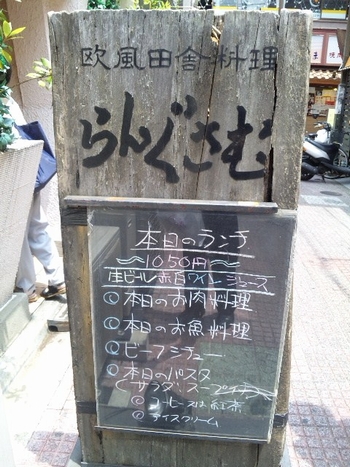 欧風田舎料理
らんぐさむ
本日のランチ
1050円
生ビール 赤白ワイン ジュース
本日のお肉料理
本日のお魚料理
ビーフシチュー
本日のパスタ
サラダ・スープ
コーヒー又は紅茶
アイスクリーム